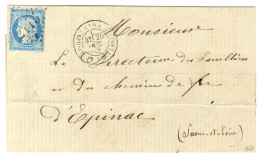 Monsieur
Le Directeur des houillères
et du chemin de fer
d'Epinac
(Saône-et-Loire)